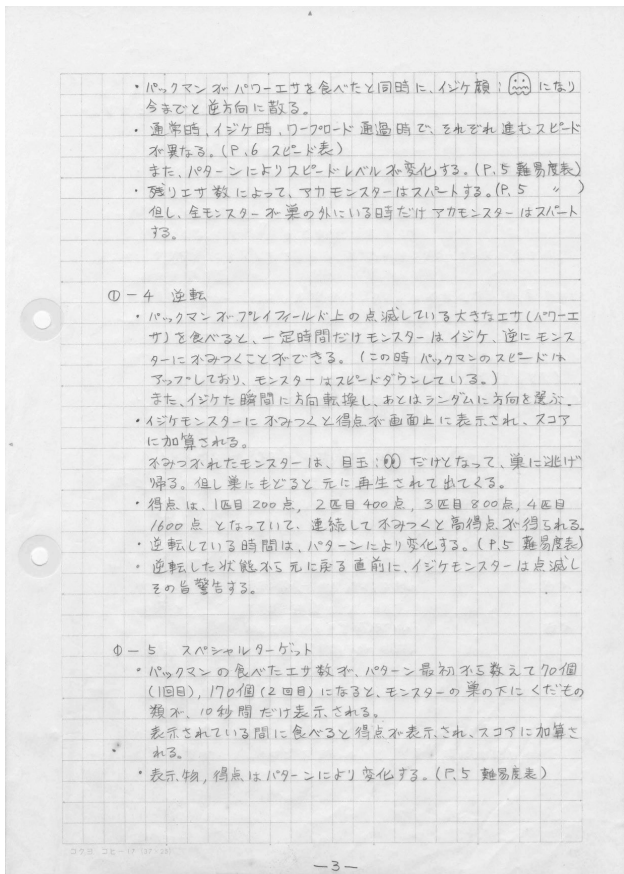 ・パックマンがパワーエサを食べたと同時に、イジケ顔：になり
今までと逆方向に散る。
・通常時、イジケ時、ワープロード通過時で、それぞれ進むスピード
が異なる。(P.6 スピード表)
また、パターンによりスピードレベルが変化する。(P.5 難易度表)
・残りエサ数によって、アカモンスターはスパートする。(P.5 〃 )
但し、全モンスターが巣の外にいる時だけアカモンスターはスパート
する。
①-4 逆転
・パックマンがプレイフィールド上の点滅している大きなエサ(パワーエ
サ)を食べると、一定時間だけモンスターはイジケ、逆にモンス
ターにかみつくことができる。(この時 パックマンのスピードは
アップしており、モンスターはスピードダウンしている。)
また、イジケた瞬間に方向転換し、あとはランダムに方向を選ぶ。
・イジケモンスターにかみつくと得点が画面上に表示され、スコア
に加算される。
かみつかれたモンスターは、目玉：だけとなって、巣に逃げ
帰る。但し巣にもどると元に再生されて出てくる。
・得点は、1匹目200点、2匹目400点、3匹目800点、4匹目
1600点となっていて、連続してかみつくと高得点が得られる。
・逆転している時間は、パターンにより変化する。(P.5 難易度表)
・逆転した状態から元に戻る直前に、イジケモンスターは点滅し
その旨警告する。
①-5 スペシャルターゲット
・パックマンの食べたエサ数が、パターン最初から数えて70個
(1回目)、170個(2回目)になると、モンスターの巣の下にくだもの
類が、10秒間だけ表示される。
表示されている間に食べると得点が表示され、スコアに加算さ
れる。
・表示物、得点はパターンにより変化する。(P.5 難易度表)
-3-